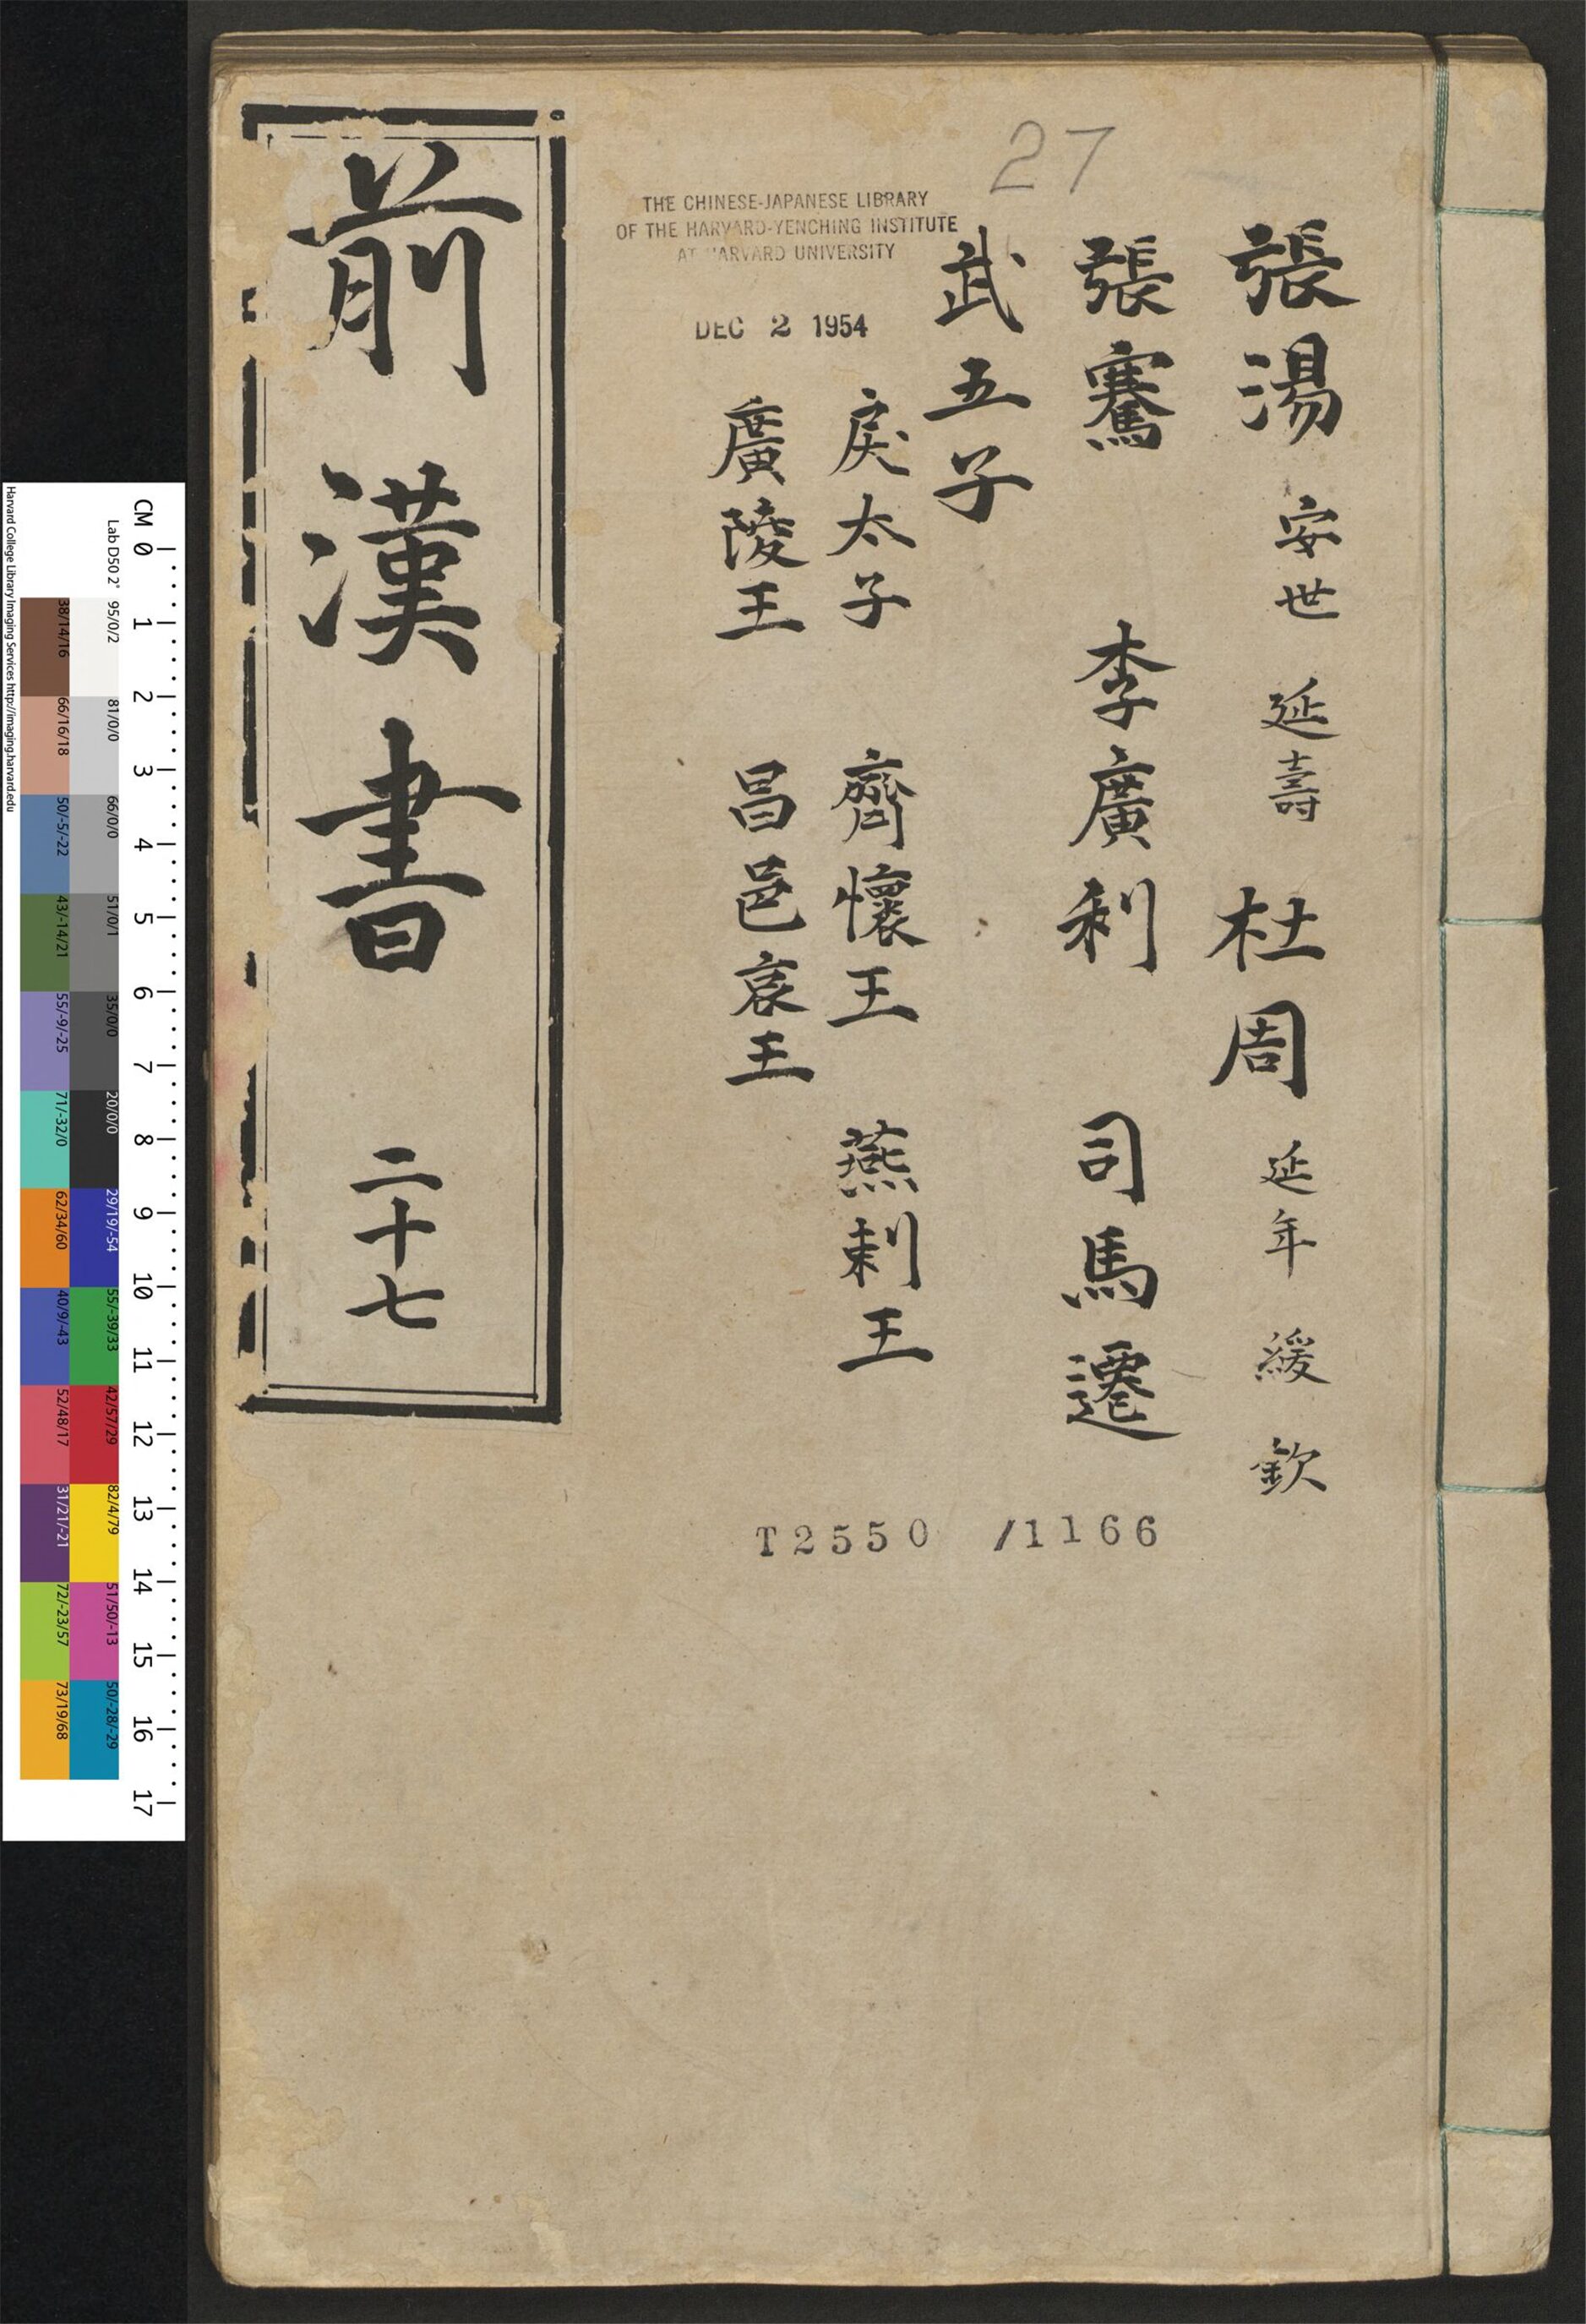 27
張湯 安世 延壽 杜周 延年 緩 欽
張騫 李廣利 司馬遷
武五子
戾太子 齊懷王 燕剌王
廣陵王 昌邑哀王
THE CHINESE-JAPANESE LIBRARY
OF THE HARVARD-YENCHING INSTITUTE
AT HARVARD UNIVERSITY
DEC 2 1954
T2550 /1166
前漢書 二十七
CM 0 1 2 3 4 5 6 7 8 9 10 11 12 13 14 15 16 17
Lab D50 2° 95/0/2 81/0/0 66/0/0 51/0/1 35/0/0 20/0/0 29/19/-54 55/-39/33 42/57/29 82/4/79 51/50/-13 50/-28/-29
38/14/16 66/16/18 50/-5/-22 43/-14/21 55/-9/-25 71/-32/0 62/34/60 40/9/-43 52/48/17 31/21/-21 72/-23/57 73/19/68
Harvard College Library Imaging Services http://imaging.harvard.edu